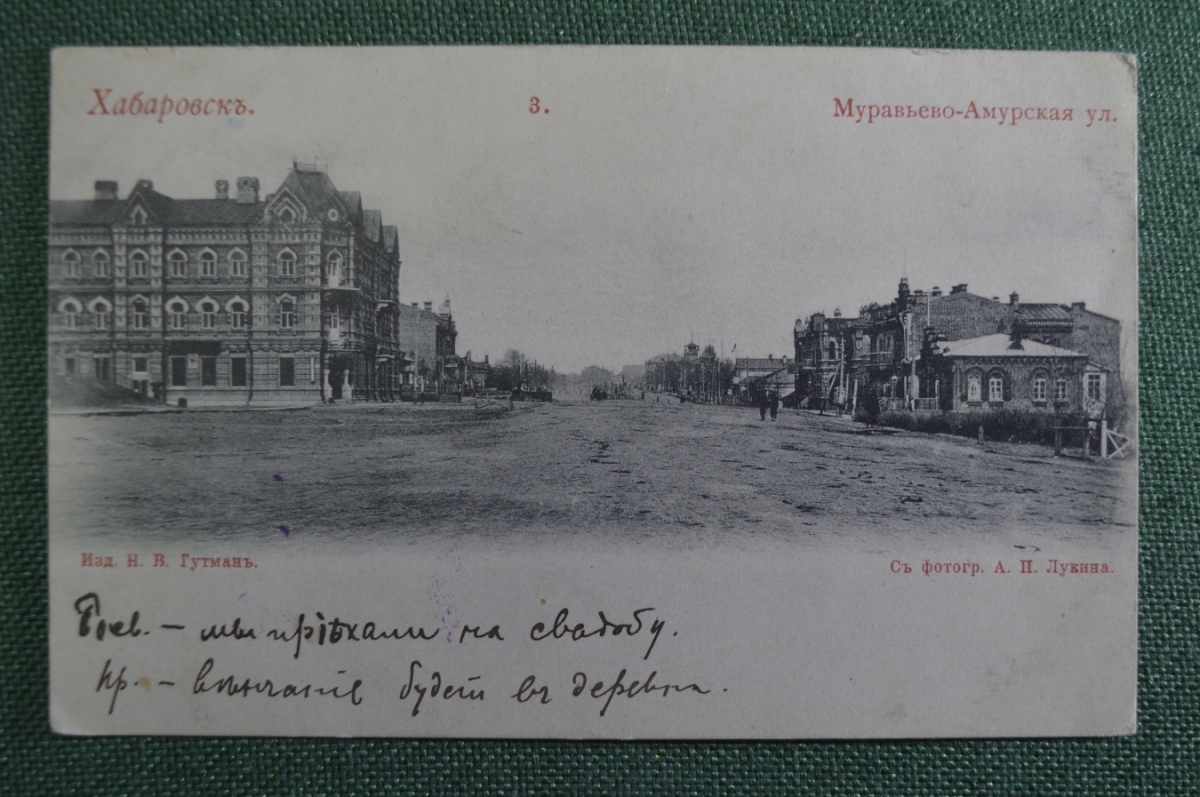 Хабаровскъ.
3.
Муравьево-Амурская ул.
Изд. Н. В. Гутманъ.
Съ фотогр. А. П. Лукина.
– мы пріѣхали на свадобу.
пр. – вѣнчаніе будет въ деревни.